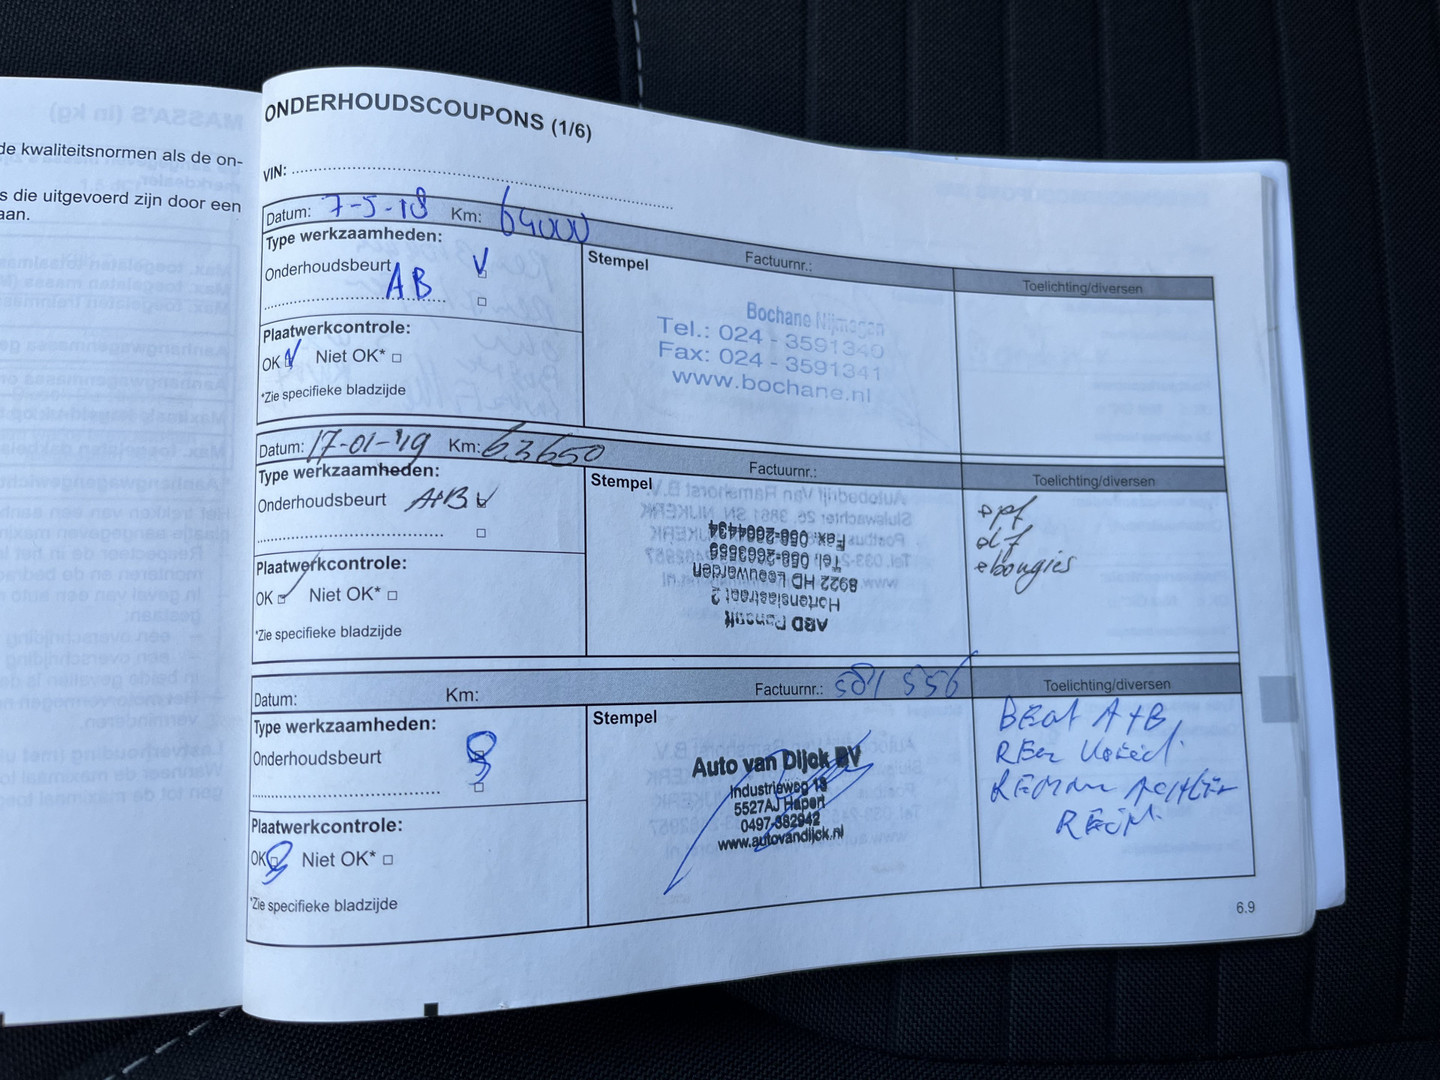 de kwaliteitsnormen als de on-
s die uitgevoerd zijn door een
aan.
ONDERHOUDSCOUPONS (1/6)
VIN:
Datum: 7-5-18 Km: 64000
Factuurnr.:
Toelichting/diversen
Type werkzaamheden:
Onderhoudsbeurt
AB
Stempel
Bochane Nijmegen
Tel.: 024 - 3591340
Fax: 024 - 3591341
www.bochane.nl
Plaatwerkcontrole:
OK Niet OK*
*Zie specifieke bladzijde
Datum: 17-01-'19 Km: 63650
Factuurnr.:
Toelichting/diversen
Type werkzaamheden:
Onderhoudsbeurt A+B
Stempel
ABD
Hortensiastraat 2
8922 HD Leeuwarden
Tel: 058-2663556
Fax: 058-2664434
bougies
Plaatwerkcontrole:
OK Niet OK*
*Zie specifieke bladzijde
Datum: Km:
Factuurnr.: 581 556
Toelichting/diversen
Type werkzaamheden:
Onderhoudsbeurt
Stempel
Auto van Dijck BV
Industrieweg 18
5527AJ Hapert
0497-382942
www.autovandijck.nl
A+B
Plaatwerkcontrole:
OK Niet OK*
*Zie specifieke bladzijde
6.9